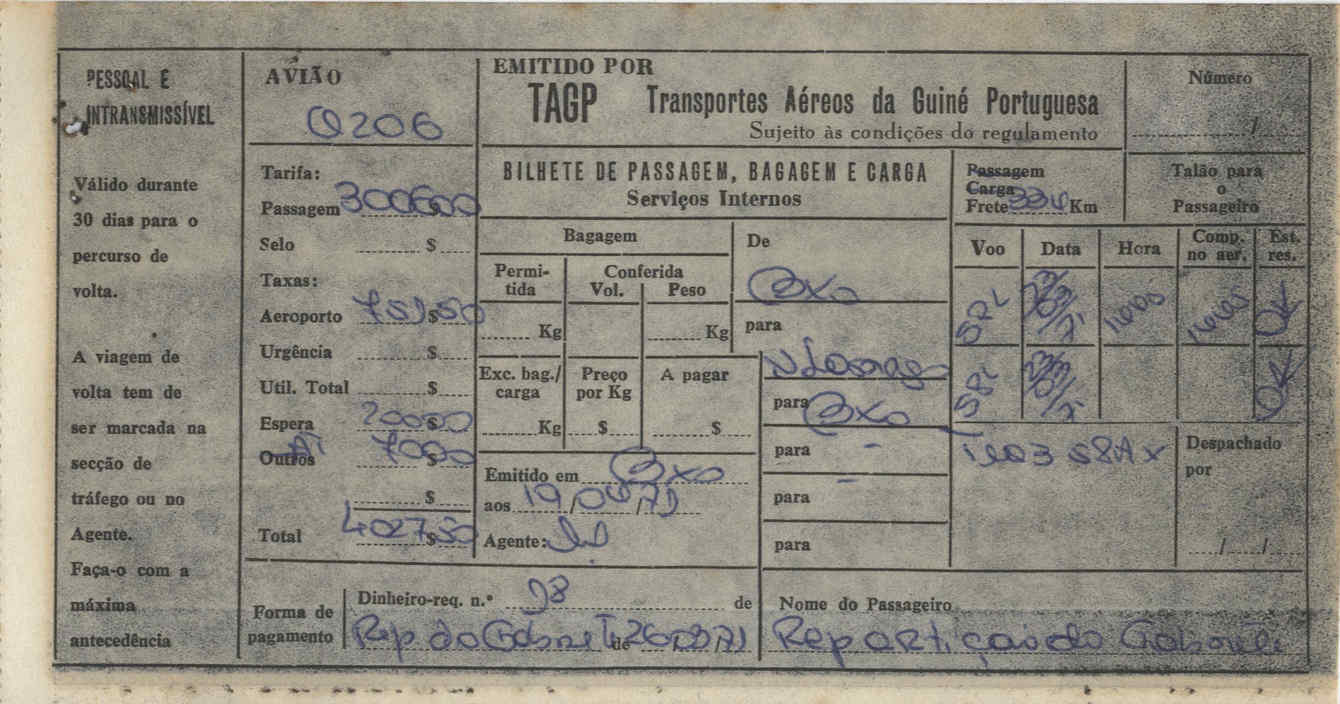 PESSOAL E
INTRANSMISSÍVEL
Válido durante
30 dias para o
percurso de
volta.
A viagem de
volta tem de
ser marcada na
secção de
tráfego ou no
Agente.
Faça-o com a
máxima
antecedência
AVIÃO
Q206
Tarifa:
Passagem 300$00
Selo $
Taxas:
Aeroporto 75$50
Urgência $
Util. Total $
Espera 20$00
Outros $
$
Total 402$50
EMITIDO POR
TAGP Transportes Aéreos da Guiné Portuguesa
Sujeito às condições do regulamento
BILHETE DE PASSAGEM, BAGAGEM E CARGA
Serviços Internos
Bagagem
Permi-
tida
Conferida
Vol. Peso
Kg Kg
Exc. bag./
carga
Preço
por Kg
A pagar
Kg $ $
Emitido em Bxo
aos 19/04/71
Agente:
De
Bxo
para
para Bxo
para -
para -
para
Número
/
Passagem
Carga
Frete 334 Km
Talão para
o
Passageiro
Voo Data Hora Comp. no aer. Est. res.
SPL 1600 1600 OK
SPL OK
Despachado
por
/ /
Forma de
pagamento
Dinheiro-req. n.º 98 de
Rep do Gabinet de
Nome do Passageiro
Repartição do Gabinete